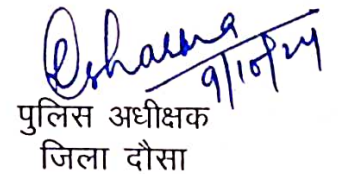 9/10/24
पुलिस अधीक्षक
जिला दौसा